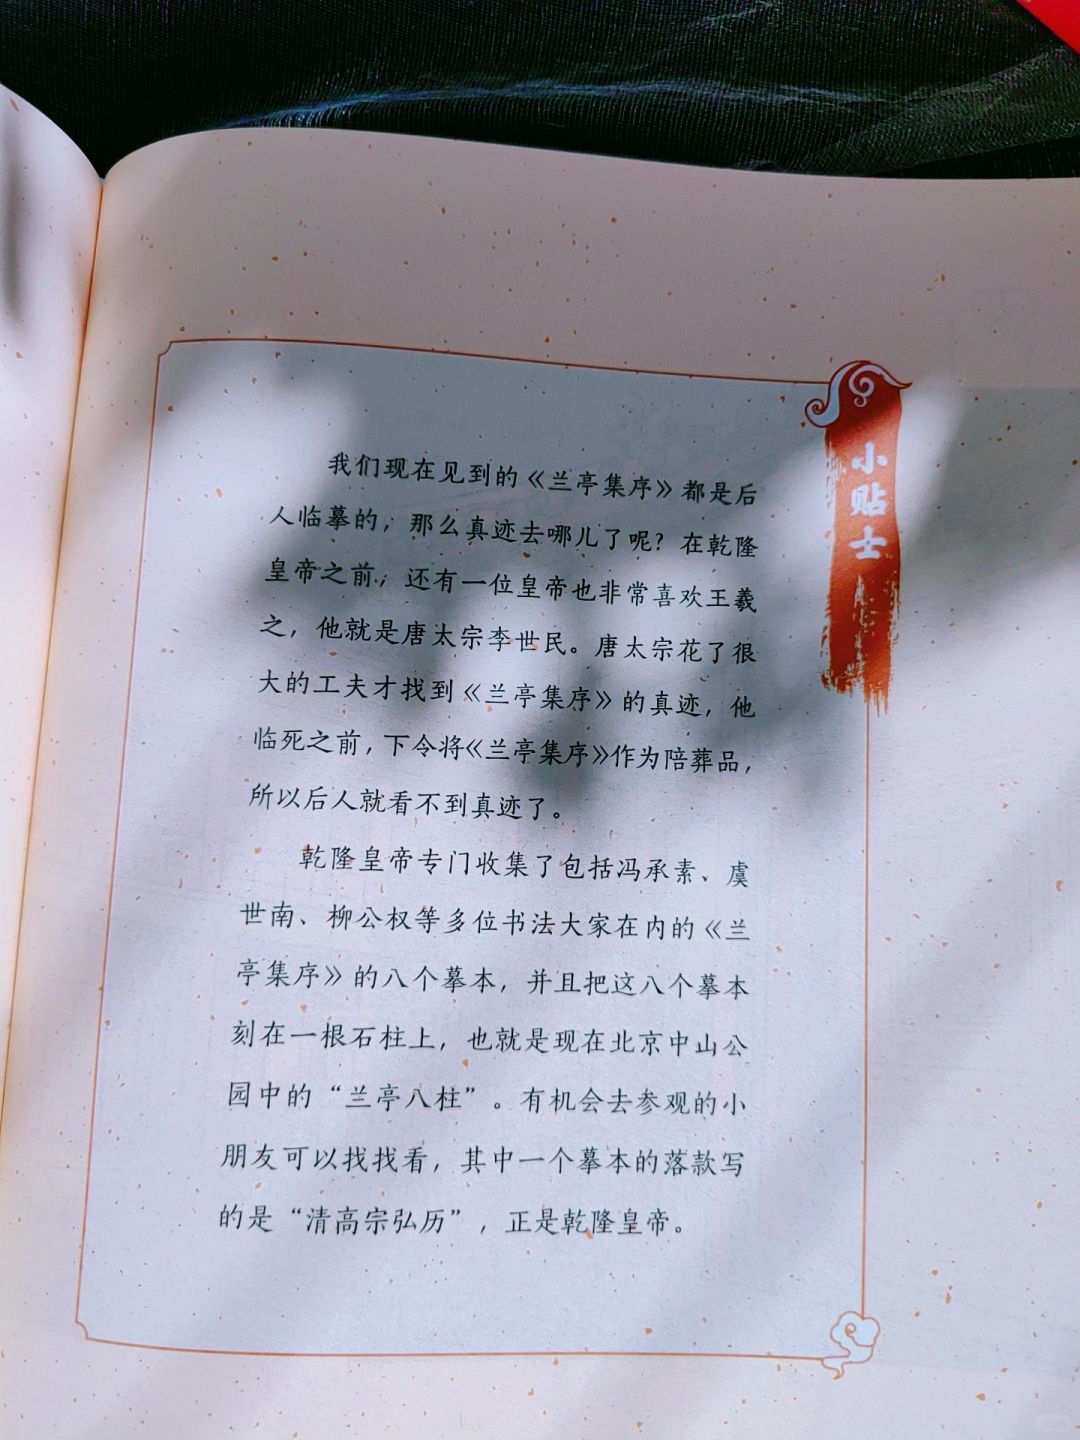 小贴士
我们现在见到的《兰亭集序》都是后
人临摹的，那么真迹去哪儿了呢？在乾隆
皇帝之前，还有一位皇帝也非常喜欢王羲
之，他就是唐太宗李世民。唐太宗花了很
大的工夫才找到《兰亭集序》的真迹，他
临死之前，下令将《兰亭集序》作为陪葬品，
所以后人就看不到真迹了。
乾隆皇帝专门收集了包括冯承素、虞
世南、柳公权等多位书法大家在内的《兰
亭集序》的八个摹本，并且把这八个摹本
刻在一根石柱上，也就是现在北京中山公
园中的“兰亭八柱”。有机会去参观的小
朋友可以找找看，其中一个摹本的落款写
的是“清高宗弘历”，正是乾隆皇帝。